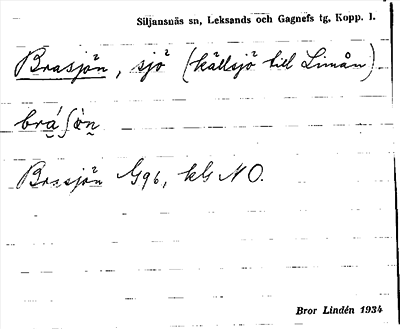 Siljansnäs sn, Leksands och Gagnefs tg, Kopp. l.
Brasjön, sjö (källsjö till Limån).
Brasjön G96, kbl NO.
Bror Lindén 1934